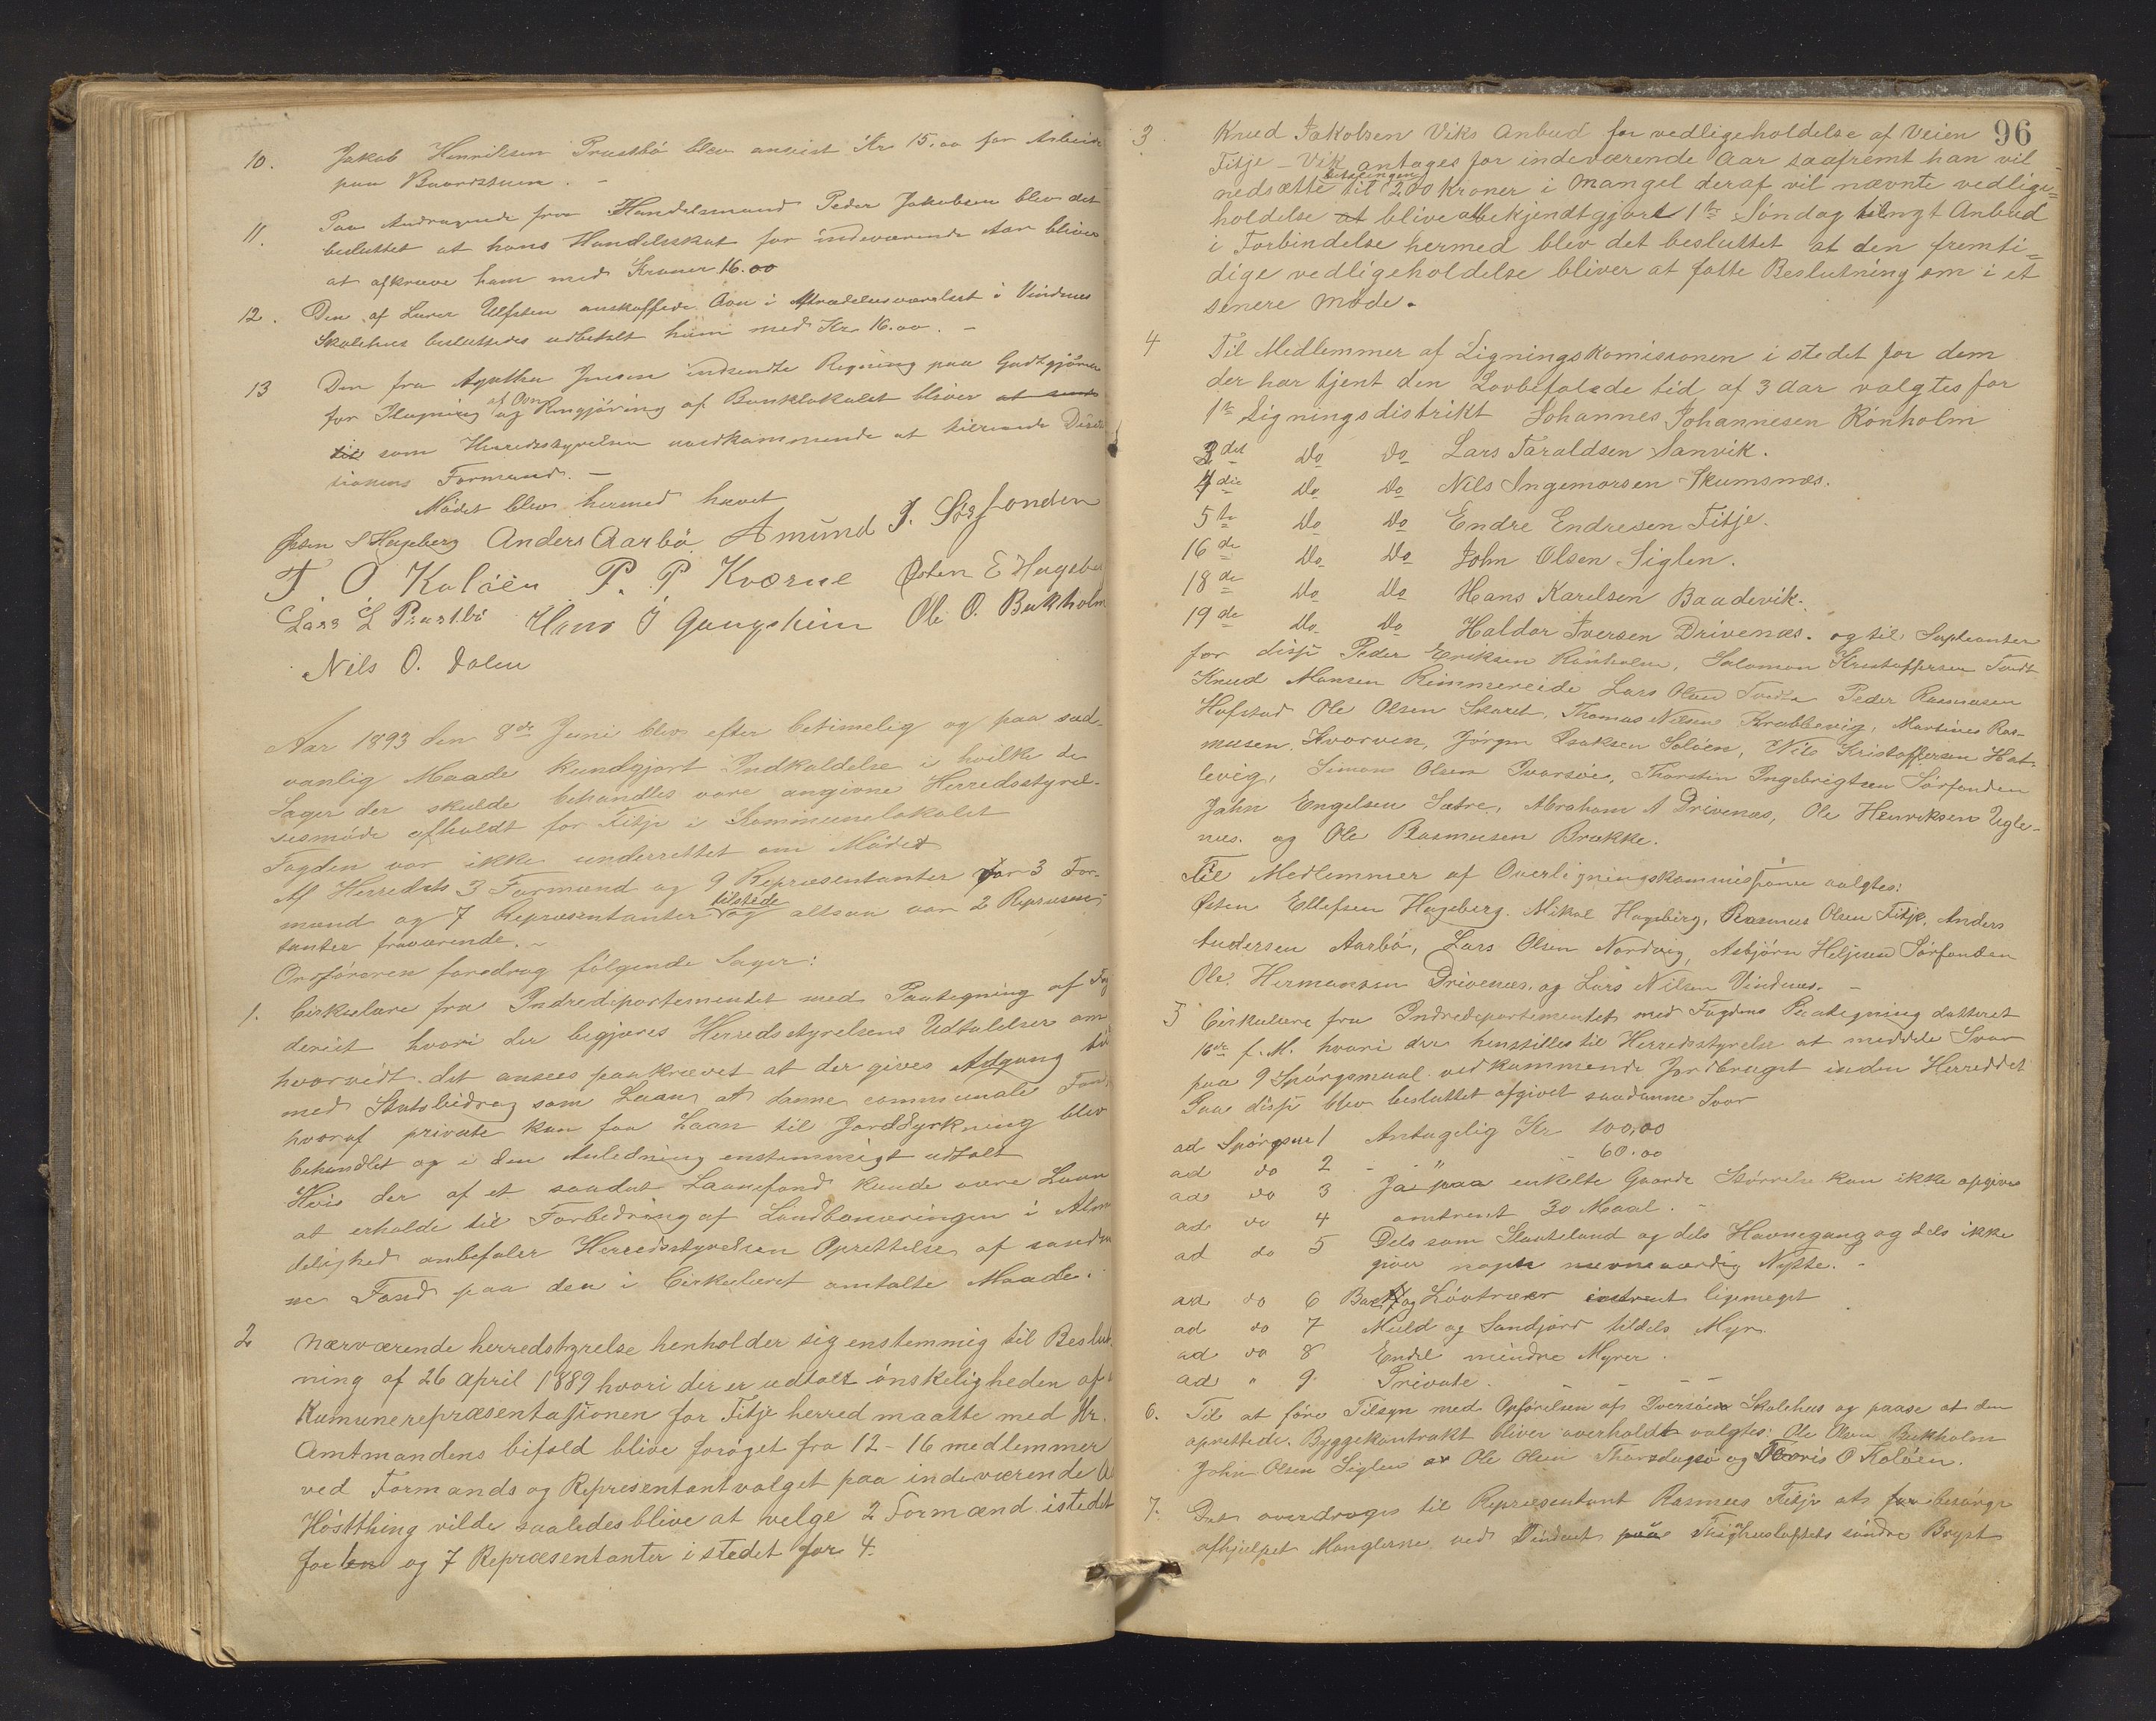 10. Jakob Henriksen Prestbø blev anvist Kr 15.00 for Arbeide
paa Baadstuen. –
11. Paa Andragende fra Handelsmand Peder Jakobsen blev det
besluttet at hans Handelsskat for indeværende Aar bliver
at afkræve ham med Kroner 16.00
12. Den af Lærer Ulfsten anskaffede Ovn i Aftrædelsesværelset i Vindnæs
Skolehus besluttedes udbetalt ham med Kr. 16.00. –
13 Den fra Agatha Jensen indsendte Regning paa Godtgjörelse
for Ilægning af Ovn og Rengjöring af Banklokalet bliver at sende
til som Herredsstyrelsen uvedkommende at tilsende Direk
tionens Formand. –
Mödet blev hermed hævet
Østen S Hageberg Anders Aarbö Amund J. Sörfonden
T. O. Kalöen P. P. Kværne Østen E Hageber
Lars L Præstbö Hans J Gangstöin Ole O. Bukholm
Nils O. Dalen
Aar 1893 den 8de Juni blev efter betimelig og paa sæd-
vanlig Maade kundgjort Indkaldelse i hvilke de
Sager der skulde behandles vare angivne Herredsstyrel-
sesmöde afholdt for Fitje i Kommunelokalet
Fogden var ikke underrettet om Mödet
Af Herredets 3 Formænd og 9 Repræsentanter var 3 For-
mænd og 7 Repræsentanter tilstede og altsaa var 2 Repræsen-
tanter fraværende. –
Ordföreren foredrog fölgende Sager:
1. Cirkulære fra Indredepartementet med Paategning af Fog
deriet hvori der begjæres Herredsstyrelsens Udtalelser om
hvorvidt det ansees paakrævet at der gives Adgang til
med Statsbidrag som Laan at danne communale Fond
hvoraf private kan faa Laan til Jorddyrkning blev
behandlet og i den Anledning enstemmigt udtalt
Hvis der af et saadat Laanefond kunde være Laan
at erholde til Forbedring af Landbonæringen i Almin
delighed anbefaler Herredsstyrelsen Oprettelse af saadan
ne Fond paa den i Cirkulæret omtalte Maade.
2 Nærværende herredstyrelse henholder sig enstemmig til Beslut
ning af 26 April 1889 hvori der er udtalt önskeligheden af
Kumunerepræsentasionen for Fitje herred maatte med Hr.
Amtmandens bifald blive foröget fra 12 - 16 medlemmer
ved Formands og Repræsentantvalget paa indeværende A
Hösthing vilde saaledes blive at velge 2 Formænd istedet
for en og 7 Repræsentanter i stedet for 4.
96
3 Knud Jakobsen Viks Anbud for vedligeholdelse af Veien
Fitje – Vik antages for indeværende Aar saafremt han vil
nedsætte betalingen til 200 kroner i Mangel deraf vil nævnte vedlige=
holdelse at blive at bekjendtgjort 1te Söndag til nyt Anbud
i Forbindelse hermed blev det besluttet at den fremti=
dige vedligeholdelse bliver at fatte Beslutning om i et
senere möde.
4 Til Medlemmer af Ligningskomissionen i stedet for dem
der har tjent den Lovbefalede tid af 3 Aar valgtes for
1te Ligningsdistrikt Johannes Johannesen Rönholm
3det Do Do Lars Taraldsen Sanvik.
4de Do Do Nils Ingemorsen Skumsnæs.
5te Do Do Endre Endresen Fitje.
16de Do Do John Olsen Siglen.
18de Do Do Hans Karelsen Baadevik.
19de Do Do Haldor Iversen Drivenæs. og til Supleanter
for disse Peder Eriksen Rönholm, Salomon Kristoffersen Tvedt
Knud Monsen Rimmereide Lars Olsen Tvedte Peder Rasmusen
Hafstad Ole Olsen Skaret, Thomas Nilsen Krabbevig, Martines Ras-
musen Kvorven, Jörgen Isaksen Solöen, Nils Kristoffersen Hat-
levig, Simon Olsen Ivarsöe, Thorstein Ingebrigtsen Sörfonden
John Engelsen Sætre, Abraham A Drivenæs, Ole Henriksen Ugle-
næs. og Ole Rasmusen Brække.
Til Medlemmer af Overligningskommissionen valgtes:
Østen Ellefsen Hageberg. Mikal Hageberg, Rasmus Olsen Fitje, Anders
Andersen Aarbö, Lars Olsen Nordvig, Asbjörn Heljesen Sörfonden
Ole Hermansen Drivenæs. og Lars Nilsen Vindnæs. –
5 Cirkulære fra Indredepartementet med Fogdens Paategning datteret
16de f. M. hvori der henstilles til Herredsstyrelse at meddele Svar
paa 9 Spörgsmaal vedkommende Jordbruget inden Herreddet
Paa disse blev besluttet afgivet saadanne Svar
ad Spörgsm 1 Antagelig Kr 100,00
ad do 2 - " - 60.00
ad do 3 Ja paa enkelte Gaarde Störrelse kan ikke opgives
ad do 4 omtrent 30 Maal. –
ad do 5 Dels som Slaateland og dels Havnegang og dels ikke
giver nogen nævneværdig Nytte. –
ad do 6 Bar og Lövtræer omtrent ligemeget
ad do 7 Muld og Sandjord tildels Myr
ad do 8 Endel mindre Myrer.
ad " 9 Private. – – – –
6. Til at före Tilsyn med Opförelsen af Iversöen Skolehus og paase at den
oprettede Byggekontrakt bliver overholdt valgtes: Ole Olsen Bukholm
John Olsen Siglen Ole Olsen Thorsdagsö og Tæris O Kalöen.
7. Det overdroges til Repræsentant Rasmus Fitje at besörge
afhjælpet Manglerne ved Vinduet paa Thinghusloftets söndre Bryst